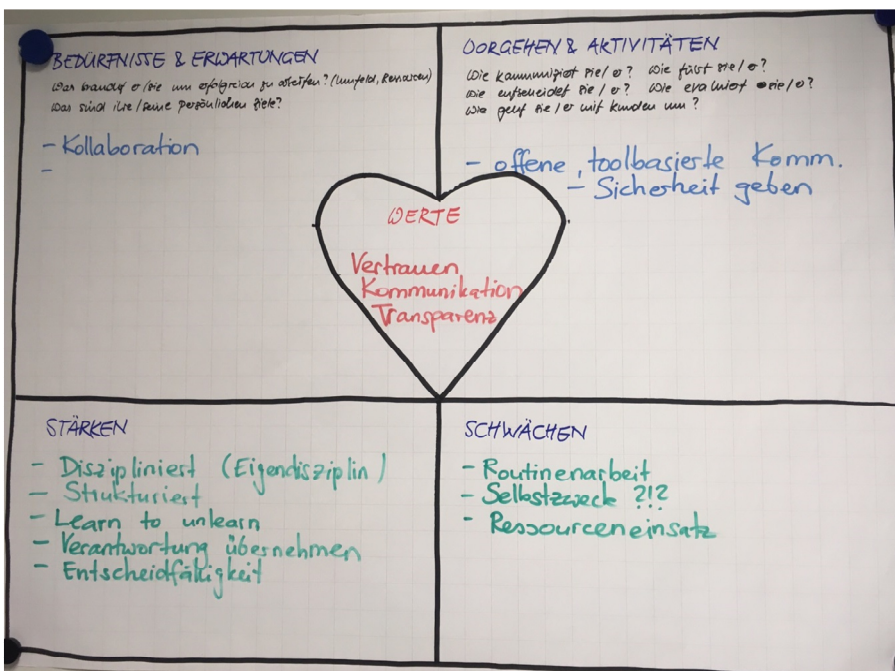 BEDÜRFNISSE & ERWARTUNGEN
Was braucht er/sie um erfolgreich zu arbeiten? (Umfeld, Ressourcen)
Was sind ihre/seine persönlichen Ziele?
- Kollaboration
-
VORGEHEN & AKTIVITÄTEN
Wie kommuniziert sie/er? Wie führt sie/er?
Wie entscheidet sie/er? Wie evaluiert sie/er?
Wie geht sie/er mit Kunden um?
- offene, toolbasierte Komm.
- Sicherheit geben
WERTE
Vertrauen
Kommunikation
Transparenz
STÄRKEN
- Diszipliniert (Eigendisziplin)
- Strukturiert
- Learn to unlearn
- Verantwortung übernehmen
- Entscheidfähigkeit
SCHWÄCHEN
- Routinenarbeit
- Selbstzweck ?!?
- Ressourceneinsatz